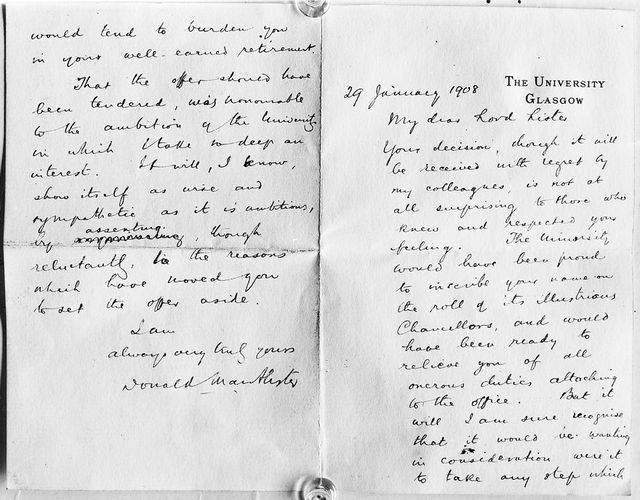 THE UNIVERSITY
GLASGOW
29 January 1908
My dear Lord Lister
Your decision, though it will
be received with regret by
my colleagues, is not at
all surprising to those who
know and respected your
feeling. The University
would have been proud
to inscribe your name on
the roll of its illustrious
Chancellors, and would
have been ready to
relieve you of all
onerous duties attaching
to the office. But it
will I am sure recognise
that it would be wanting
in consideration were it
to take any step which
would tend to burden you
in your well-earned retirement.
That the offer should have
been tendered, was honourable
to the ambition of the University
in which I take so deep an
interest. It will, I know,
show itself as wise and
sympathetic as it is ambitious,
by assenting, though
reluctantly, to the reasons
which have moved you
to set the offer aside.
I am
always very truly yours
Donald MacAlister